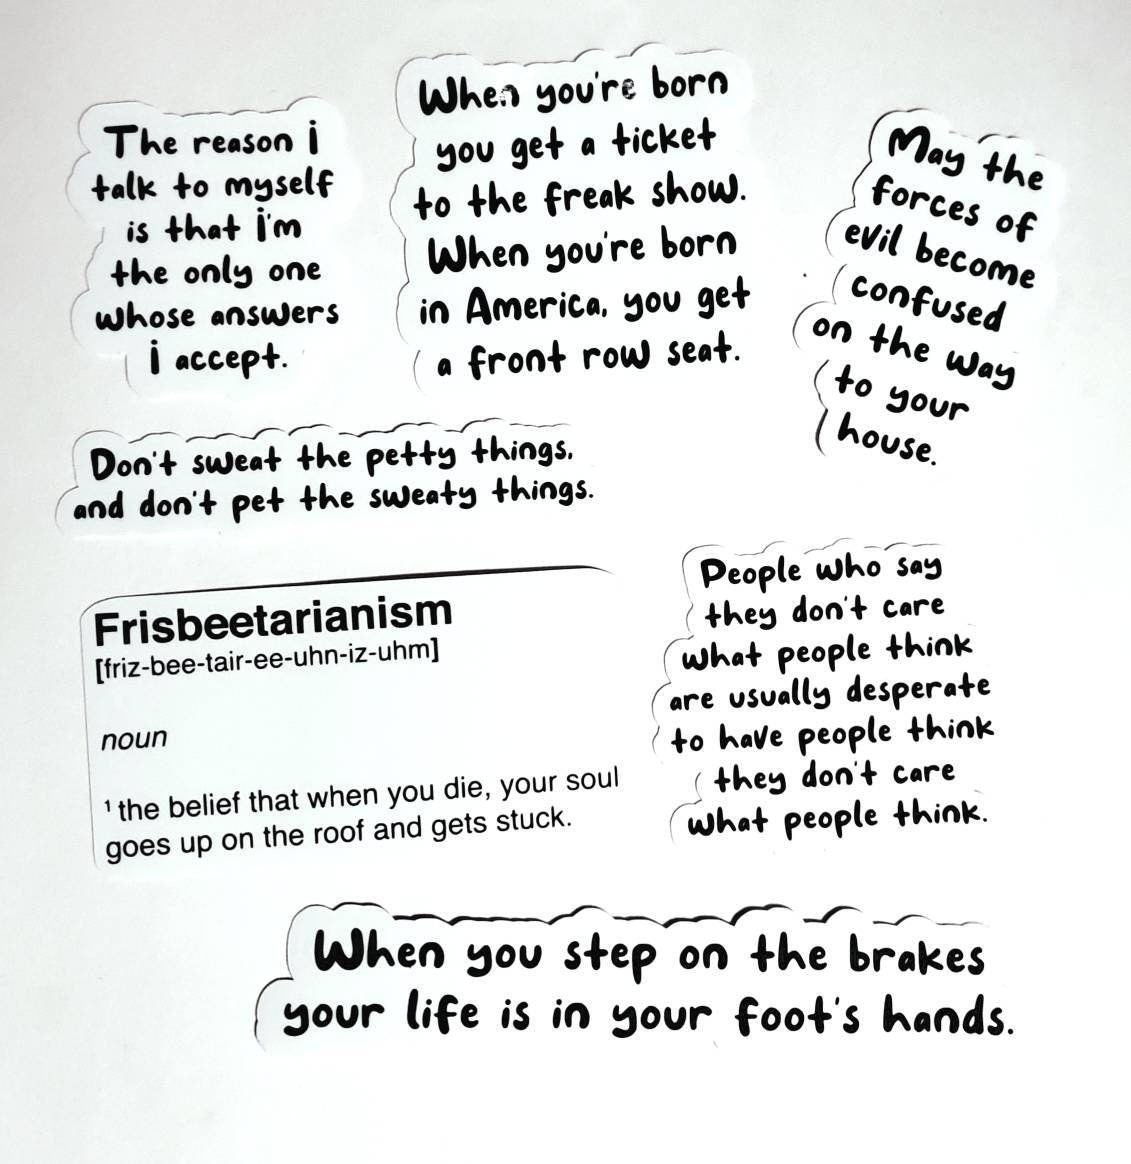 The reason i
talk to myself
is that i'm
the only one
whose answers
i accept.
When you're born
you get a ticket
to the freak show.
When you're born
in America, you get
a front row seat.
May the
forces of
evil become
confused
on the way
to your
house.
Don't sweat the petty things,
and don't pet the sweaty things.
Frisbeetarianism
[friz-bee-tair-ee-uhn-iz-uhm]
noun
¹ the belief that when you die, your soul
goes up on the roof and gets stuck.
People who say
they don't care
what people think
are usually desperate
to have people think
they don't care
what people think.
When you step on the brakes
your life is in your foot's hands.